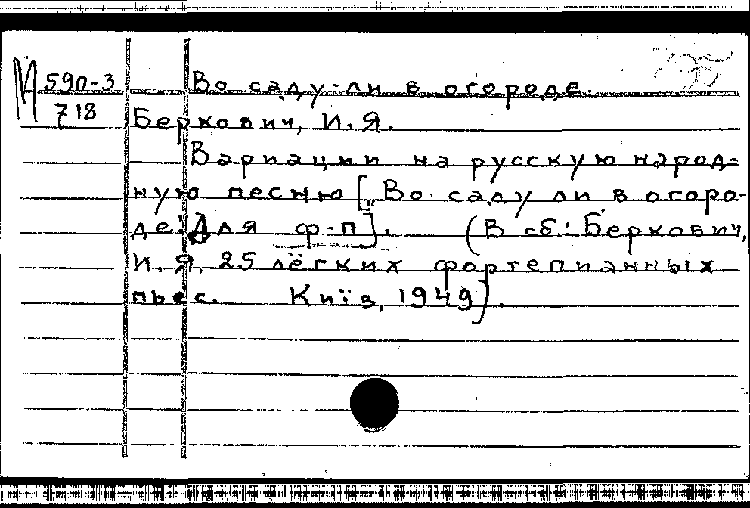 М 590-3
718
Во саду-ли в огороде.
Беркович, И. Я.
Вариации на русскую народ-
ную песню [„Во саду ли в огоро-
де". Для ф-п]. (В сб.: Беркович,
И. Я. 25 лёгких фортепианных
пьес. Київ, 1949).